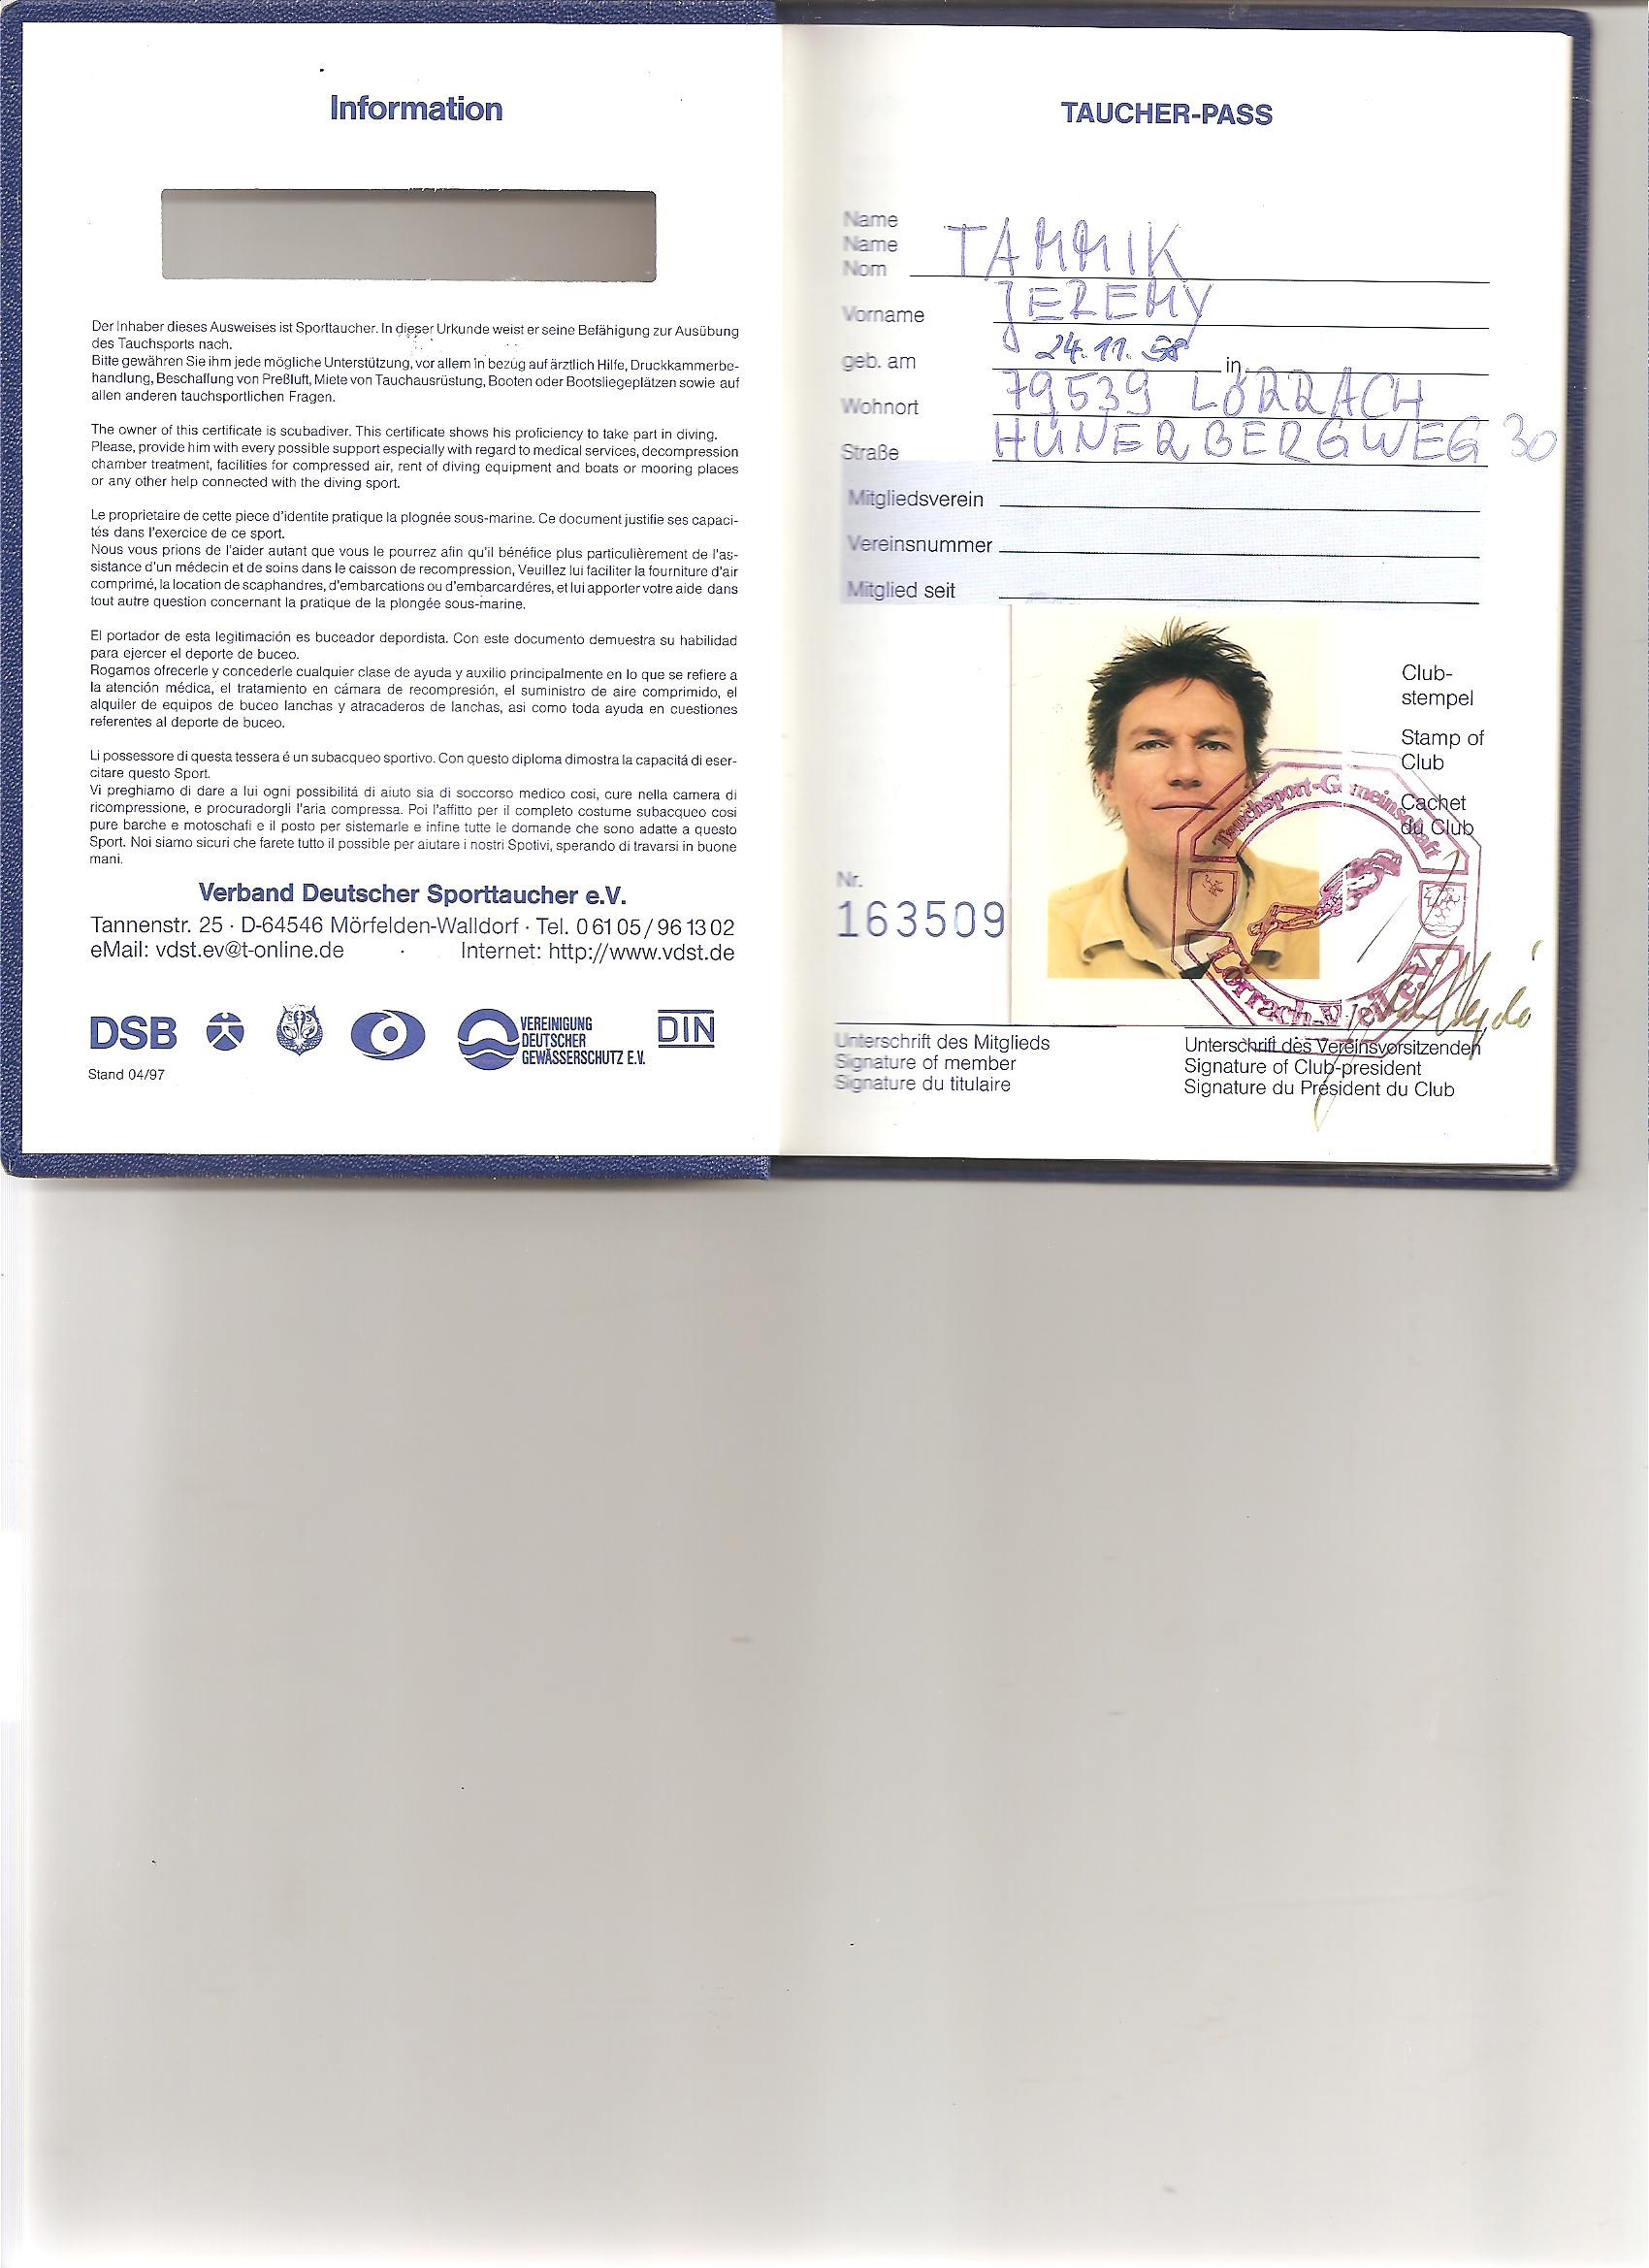 Information
Der Inhaber dieses Ausweises ist Sporttaucher. In dieser Urkunde weist er seine Befähigung zur Ausübung
des Tauchsports nach.
Bitte gewähren Sie ihm jede mögliche Unterstützung, vor allem in bezug auf ärztlich Hilfe, Druckkammerbe-
handlung, Beschaffung von Preßluft, Miete von Tauchausrüstung, Booten oder Bootsliegeplätzen sowie auf
allen anderen tauchsportlichen Fragen.
The owner of this certificate is scubadiver. This certificate shows his proficiency to take part in diving.
Please, provide him with every possible support especially with regard to medical services, decompression
chamber treatment, facilities for compressed air, rent of diving equipment and boats or mooring places
or any other help connected with the diving sport.
Le proprietaire de cette piece d'identite pratique la plognée sous-marine. Ce document justifie ses capaci-
tés dans l'exercice de ce sport.
Nous vous prions de l'aider autant que vous le pourrez afin qu'il bénéfice plus particulièrement de l'as-
sistance d'un médecin et de soins dans le caisson de recompression, Veuillez lui faciliter la fourniture d'air
comprimé, la location de scaphandres, d'embarcations ou d'embarcardéres, et lui apporter votre aide dans
tout autre question concernant la pratique de la plongée sous-marine.
El portador de esta legitimación es buceador depordista. Con este documento demuestra su habilidad
para ejercer el deporte de buceo.
Rogamos ofrecerle y concederle cualquier clase de ayuda y auxilio principalmente en lo que se refiere a
la atención médica, el tratamiento en cámara de recompresión, el suministro de aire comprimido, el
alquiler de equipos de buceo lanchas y atracaderos de lanchas, asi como toda ayuda en cuestiones
referentes al deporte de buceo.
Li possessore di questa tessera é un subacqueo sportivo. Con questo diploma dimostra la capacitá di eser-
citare questo Sport.
Vi preghiamo di dare a lui ogni possibilitá di aiuto sia di soccorso medico cosi, cure nella camera di
ricompressione, e procuradorgli l'aria compressa. Poi l'affitto per il completo costume subacqueo cosi
pure barche e motoschafi e il posto per sistemarle e infine tutte le domande che sono adatte a questo
Sport. Noi siamo sicuri che farete tutto il possible per aiutare i nostri Spotivi, sperando di travarsi in buone
mani.
Verband Deutscher Sporttaucher e.V.
Tannenstr. 25 · D-64546 Mörfelden-Walldorf · Tel. 0 61 05 / 96 13 02
eMail: vdst.ev@t-online.de · Internet: http://www.vdst.de
DSB
VEREINIGUNG
DEUTSCHER
GEWÄSSERSCHUTZ E.V.
DIN
Stand 04/97
TAUCHER-PASS
Name
Name
Nom TAMMIK
Vorname JEREMY
geb. am 24.11.58 in
Wohnort 79539 LÖRRACH
Straße HÜNERBERGWEG 30
Mitgliedsverein
Vereinsnummer
Mitglied seit
Club-
stempel
Stamp of
Club
Cachet
du Club
Tauchsport-Gemeinschaft
Lörrach-Weil e.V.
Nr.
163509
Unterschrift des Mitglieds
Signature of member
Signature du titulaire
Unterschrift des Vereinsvorsitzenden
Signature of Club-president
Signature du Président du Club